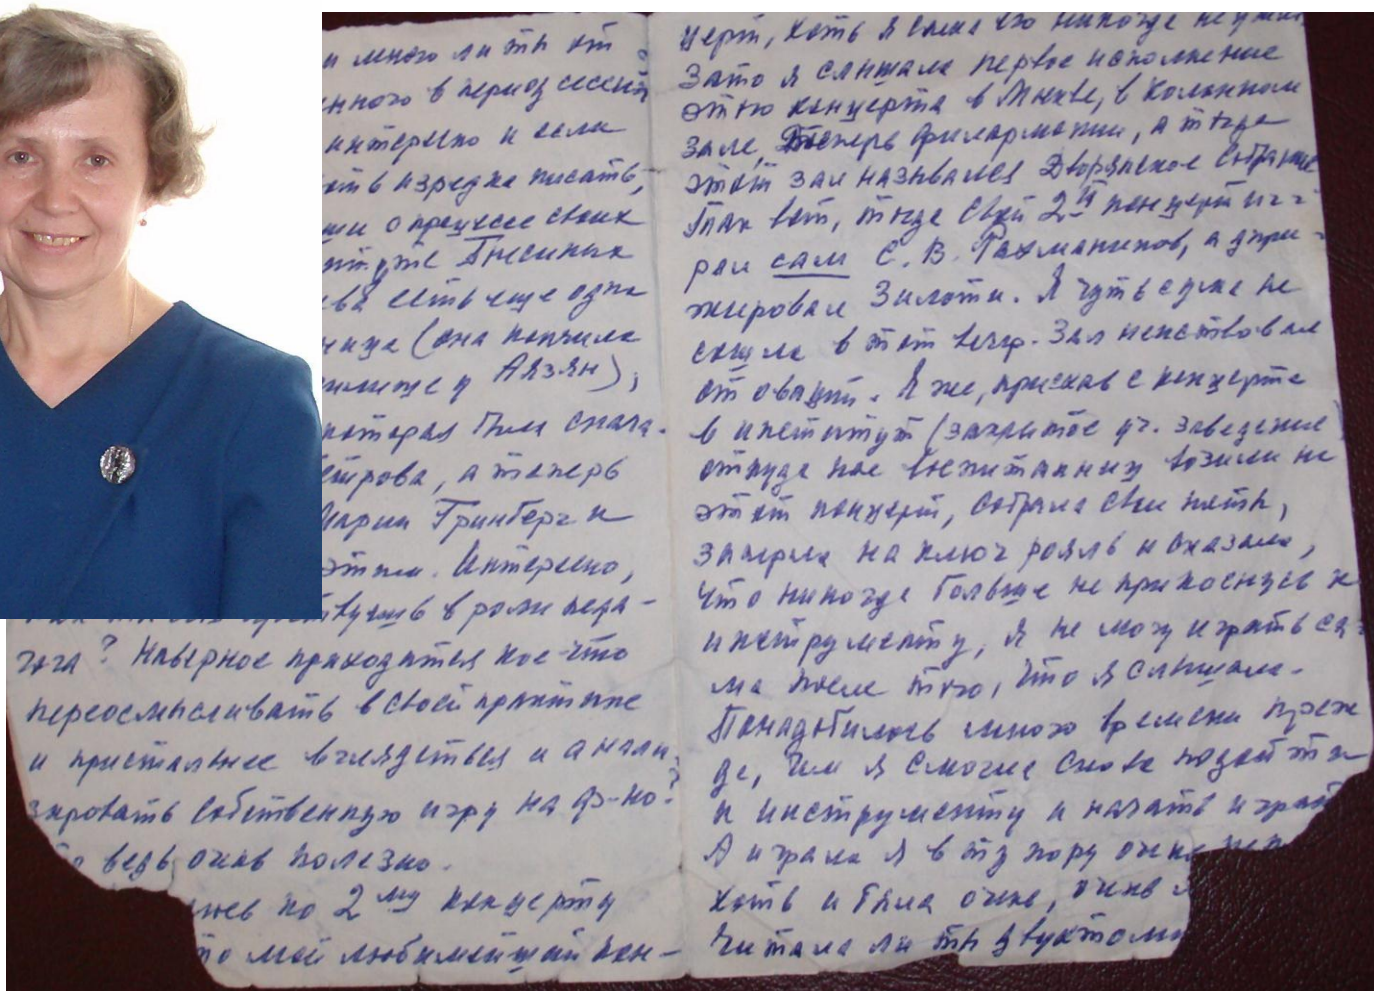 и много ли ты от
енного в период сессий?
интересно и если
изредка писать,
о процессе своих
Гнесиных
есть еще одна
ница (она кончила
училище у Аязян),
которая была снача-
етрова, а теперь
Марии Гринберг и
этим. Интересно,
в роли педа-
гога? Наверное приходится кое-что
переосмысливать в своей практике
и пристальнее вглядеться и анали-
зировать собственную игру на ф-но?
ведь очень полезно.
по 2му концерту
то мой любимейший кон-
церт, хоть я сама его никогда не
Зато я слышала первое исполнение
этого концерта в Москве, в Колонном
зале, теперь филармонии, а тогда
этот зал назывался Дворянское собрание
Так вот, тогда свой 2й концерт иг-
рал сам С. В. Рахманинов, а дири-
жировал Зилоти. Я чуть с ума не
сошла в тот вечер. Зал неистововал
от оваций. Я же, приехав с концерта
в институт (закрытое уч. заведение)
откуда нас воспитанниц возили на
этот концерт, собрала свои ноты,
заперла на ключ рояль и сказала,
что никогда больше не прикоснусь к
инструменту, я не могу играть са-
ма после того, что я слышала.
Понадобилось много времени преж
де, чем я смогла снова подойти
к инструменту и начать играть
А играла я в ту пору очень
хоть и была очень, очень
Читала ли ты двухтомн